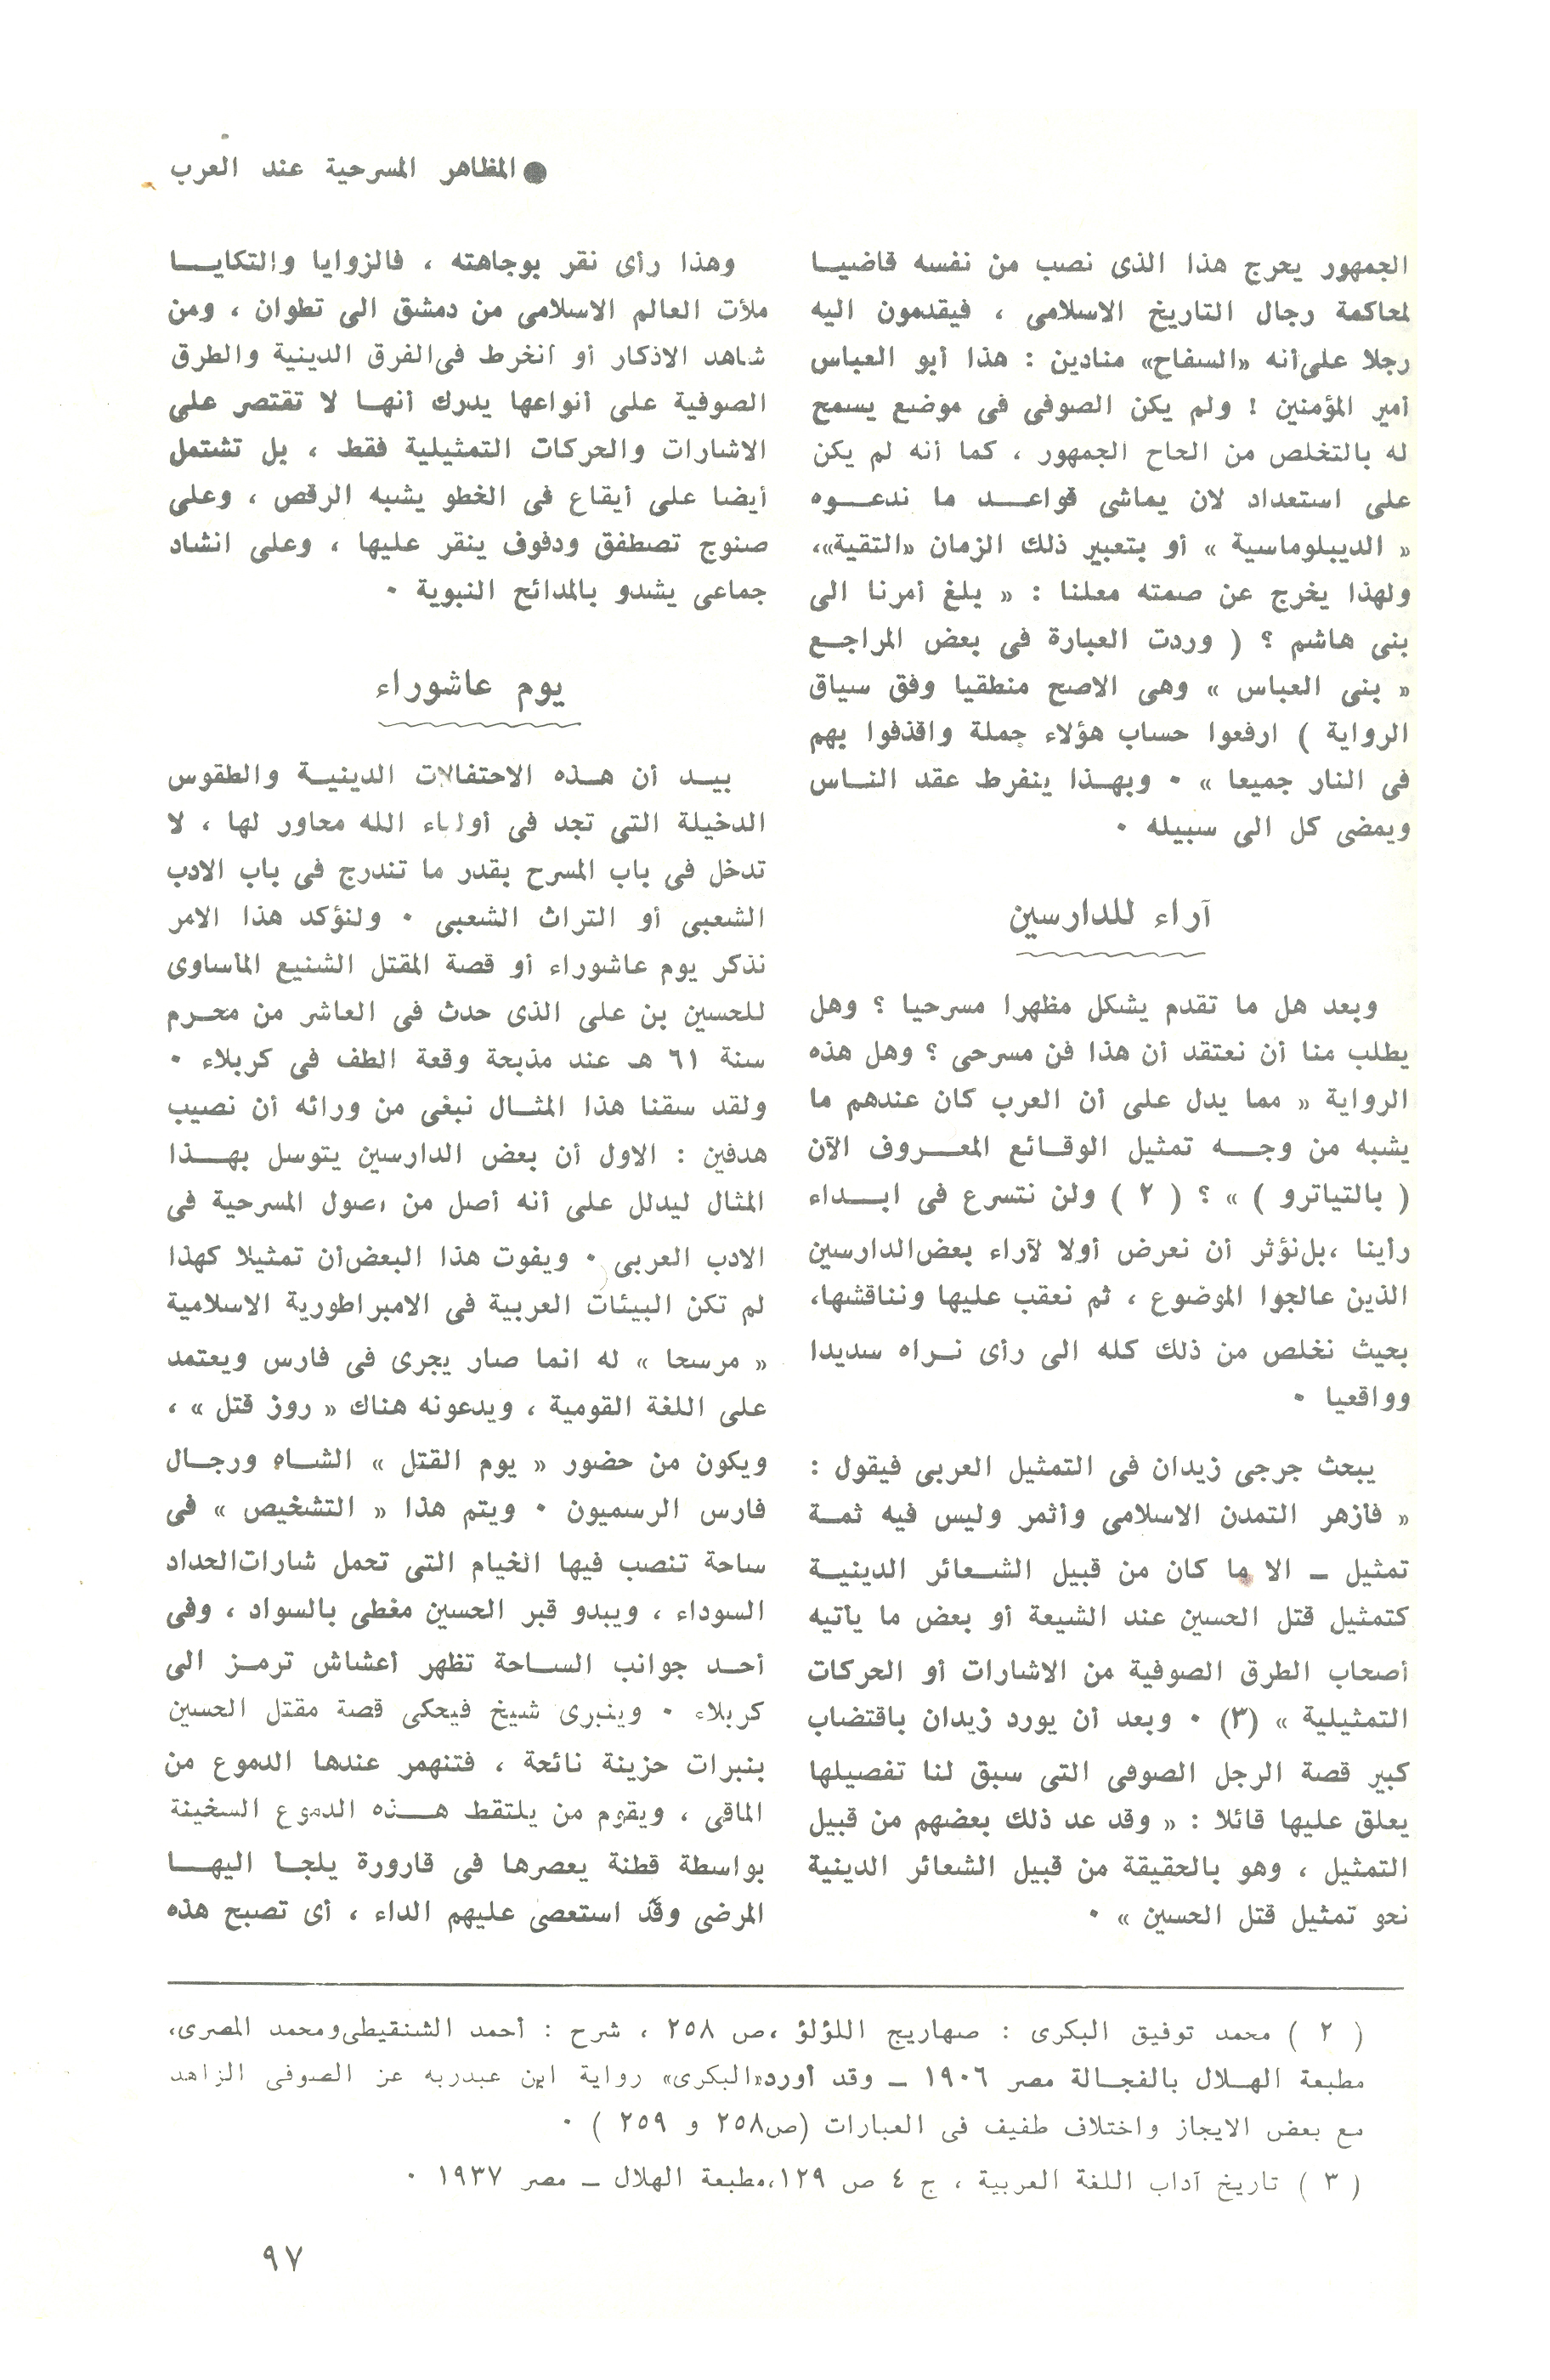 ● المظاهر المسرحية عند العرب
الجمهور يحرج هذا الذى نصب من نفسه قاضيا
لمحاكمة رجال التاريخ الاسلامى ، فيقدمون اليه
رجلا على أنه «السفاح» منادين : هذا أبو العباس
أمير المؤمنين ! ولم يكن الصوفى فى موضع يسمح
له بالتخلص من الحاح الجمهور ، كما أنه لم يكن
على استعداد لان يماشى قواعد ما ندعوه
« الديبلوماسية » أو بتعبير ذلك الزمان «التقية»،
ولهذا يخرج عن صمته معلنا : « بلغ أمرنا الى
بنى هاشم ؟ ( وردت العبارة فى بعض المراجع
« بنى العباس » وهى الاصح منطقيا وفق سياق
الرواية ) ارفعوا حساب هؤلاء جملة واقذفوا بهم
فى النار جميعا » ٠ وبهذا ينفرط عقد الناس
ويمضى كل الى سبيله ٠
آراء للدارسين
وبعد هل ما تقدم يشكل مظهرا مسرحيا ؟ وهل
يطلب منا أن نعتقد أن هذا فن مسرحى ؟ وهل هذه
الرواية « مما يدل على أن العرب كان عندهم ما
يشبه من وجه تمثيل الوقائع المعروف الآن
( بالتياترو ) » ؟ ( ٢ ) ولن نتسرع فى ابداء
رأينا ،بل نؤثر أن نعرض أولا لآراء بعض الدارسين
الذين عالجوا الموضوع ، ثم نعقب عليها ونناقشها،
بحيث نخلص من ذلك كله الى رأى نراه سديدا
وواقعيا ٠
يبحث جرجى زيدان فى التمثيل العربى فيقول :
« فأزهر التمدن الاسلامى وأثمر وليس فيه ثمة
تمثيل ــ الا ما كان من قبيل الشعائر الدينية
كتمثيل قتل الحسين عند الشيعة أو بعض ما يأتيه
أصحاب الطرق الصوفية من الاشارات أو الحركات
التمثيلية » (٣) ٠ وبعد أن يورد زيدان باقتضاب
كبير قصة الرجل الصوفى التى سبق لنا تفصيلها
يعلق عليها قائلا : « وقد عد ذلك بعضهم من قبيل
التمثيل ، وهو بالحقيقة من قبيل الشعائر الدينية
نحو تمثيل قتل الحسين » ٠
وهذا رأى نقر بوجاهته ، فالزوايا والتكايا
ملأت العالم الاسلامى من دمشق الى تطوان ، ومن
شاهد الاذكار أو انخرط فى الفرق الدينية والطرق
الصوفية على أنواعها يدرك أنها لا تقتصر على
الاشارات والحركات التمثيلية فقط ، بل تشتمل
أيضا على أيقاع فى الخطو يشبه الرقص ، وعلى
صنوج تصطفق ودفوف ينقر عليها ، وعلى انشاد
جماعى يشدو بالمدائح النبوية ٠
يوم عاشوراء
بيد أن هذه الاحتفالات الدينية والطقوس
الدخيلة التى تجد فى أولياء الله محاور لها ، لا
تدخل فى باب المسرح بقدر ما تندرج فى باب الادب
الشعبى أو التراث الشعبى ٠ ولنؤكد هذا الامر
نذكر يوم عاشوراء أو قصة المقتل الشنيع المأساوى
للحسين بن على الذى حدث فى العاشر من محرم
سنة ٦١ هـ عند مذبحة وقعة الطف فى كربلاء ٠
ولقد سقنا هذا المثال نبغى من ورائه أن نصيب
هدفين : الاول أن بعض الدارسين يتوسل بهذا
المثال ليدلل على أنه أصل من أصول المسرحية فى
الادب العربى ٠ ويفوت هذا البعض أن تمثيلا كهذا
لم تكن البيئات العربية فى الامبراطورية الاسلامية
« مرسحا » له انما صار يجرى فى فارس ويعتمد
على اللغة القومية ، ويدعونه هناك « روز قتل » ،
ويكون من حضور « يوم القتل » الشاه ورجال
فارس الرسميون ٠ ويتم هذا « التشخيص » فى
ساحة تنصب فيها الخيام التى تحمل شارات الحداد
السوداء ، ويبدو قبر الحسين مغطى بالسواد ، وفى
أحد جوانب الساحة تظهر أعشاش ترمز الى
كربلاء ٠ وينبرى شيخ فيحكى قصة مقتل الحسين
بنبرات حزينة نائحة ، فتنهمر عندها الدموع من
الماقى ، ويقوم من يلتقط هذه الدموع السخينة
بواسطة قطنة يعصرها فى قارورة يلجأ اليها
المرضى وقد استعصى عليهم الداء ، أى تصبح هذه
( ٢ ) محمد توفيق البكرى : صهاريج اللؤلؤ ،ص ٢٥٨ ، شرح : أحمد الشنقيطى ومحمد المصرى،
مطبعة الهلال بالفجالة مصر ١٩٠٦ ــ وقد أورد«البكرى» رواية ابن عبدربه عن الصوفى الزاهد
مع بعض الايجاز واختلاف طفيف فى العبارات (ص٢٥٨ و ٢٥٩ ) ٠
( ٣ ) تاريخ آداب اللغة العربية ، ج ٤ ص ١٢٩،مطبعة الهلال ــ مصر ١٩٣٧ ٠
٩٧